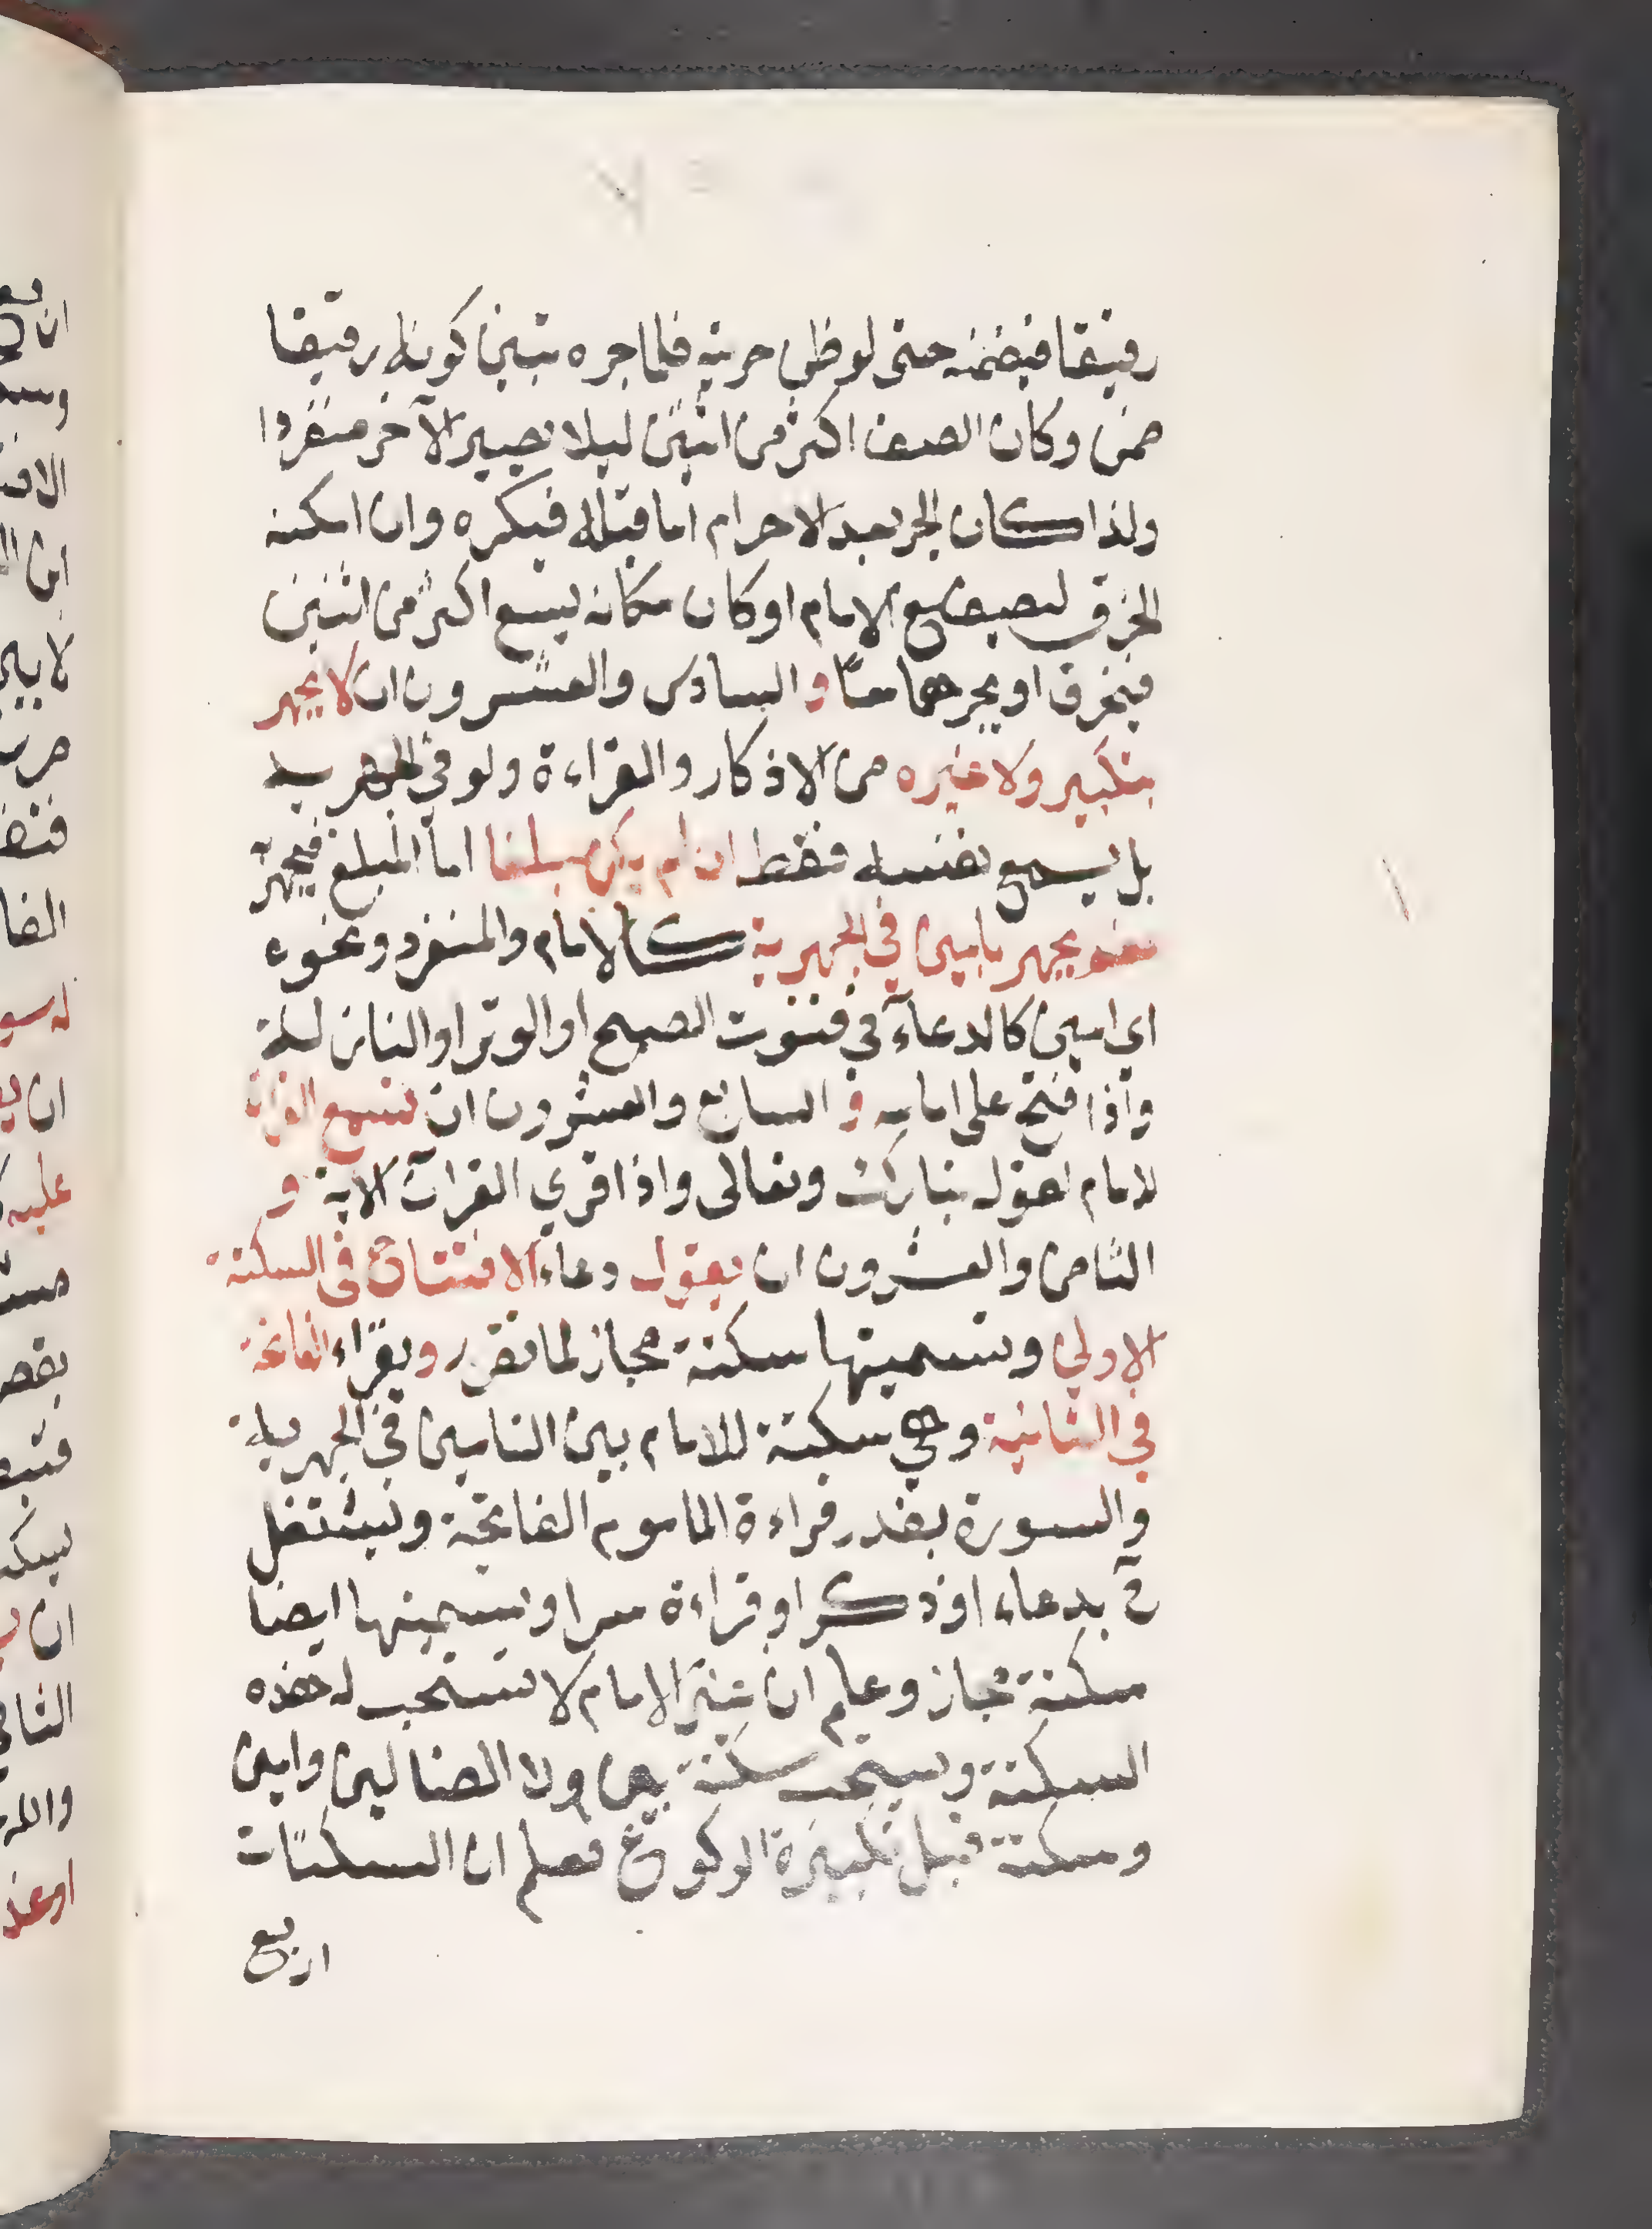 رقيقا فيضمنه حتى لو ظن حريته فلما جره تبين كونه رقيقا
ضمن وكان الصف اكثر من اثنين ليلا يصير الآخر منفردا
ولذا كان الجر بعد الاحرام اما قبله فيكره وان امكنه
الخرق ليصطف مع الامام او كان مكانه يسع اكثر من اثنين
فيخرق او يجرهما معا والسادس والعشرون ان لا يجهر
بتكبير ولا غيره من الاذكار والقراءة ولو في الجهرية
بل يسمع نفسه فقط ان لم يكن مبلغا اما المبلغ فيجهر
نعم يجهر بامين في الجهرية كالامام والمنفرد ونحوه
اي امين كالدعآء في قنوت الصبح او الوتر او النازلة
واذا فتح على امامه و السابع والعشرون ان يستمع القرآن
لامام لقوله تبارك وتعالى واذا قري القرآن الاية و
الثامن والعشرون ان يقول دعاء الافتتاح في السكتة
الاولى وتسميتها سكتة مجاز لما تقرر ويقراء الفاتحة
في الثانية وهي سكتة للامام بين التامين في الجهرية
والسورة بقدر قراءة الماموم الفاتحة ويشتغل
ح بدعاء او ذكر او قراءة سرا وتسميتها ايضا
سكتة مجاز وعلم ان غير الامام لا تستحب له هذه
السكتة ويستحب سكتة بين ولا الضالين وامين
وسكتة قبل تكبيرة الركوع فعلم ان السكتات
اربع